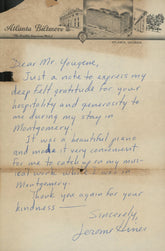 Atlanta Biltmore
ATLANTA, GEORGIA
Dear Mr. Yougene,
Just a note to express my
deep felt gratitude for your
hospitality and generosity to
me during my stay in
Montgomery.
It was a beautiful piano
and made it very convenient
for me to catch up in my mus-
ical work while I was in
Montgomery.
Thank you again for your
kindness
Sincerely,
Jerome Hines